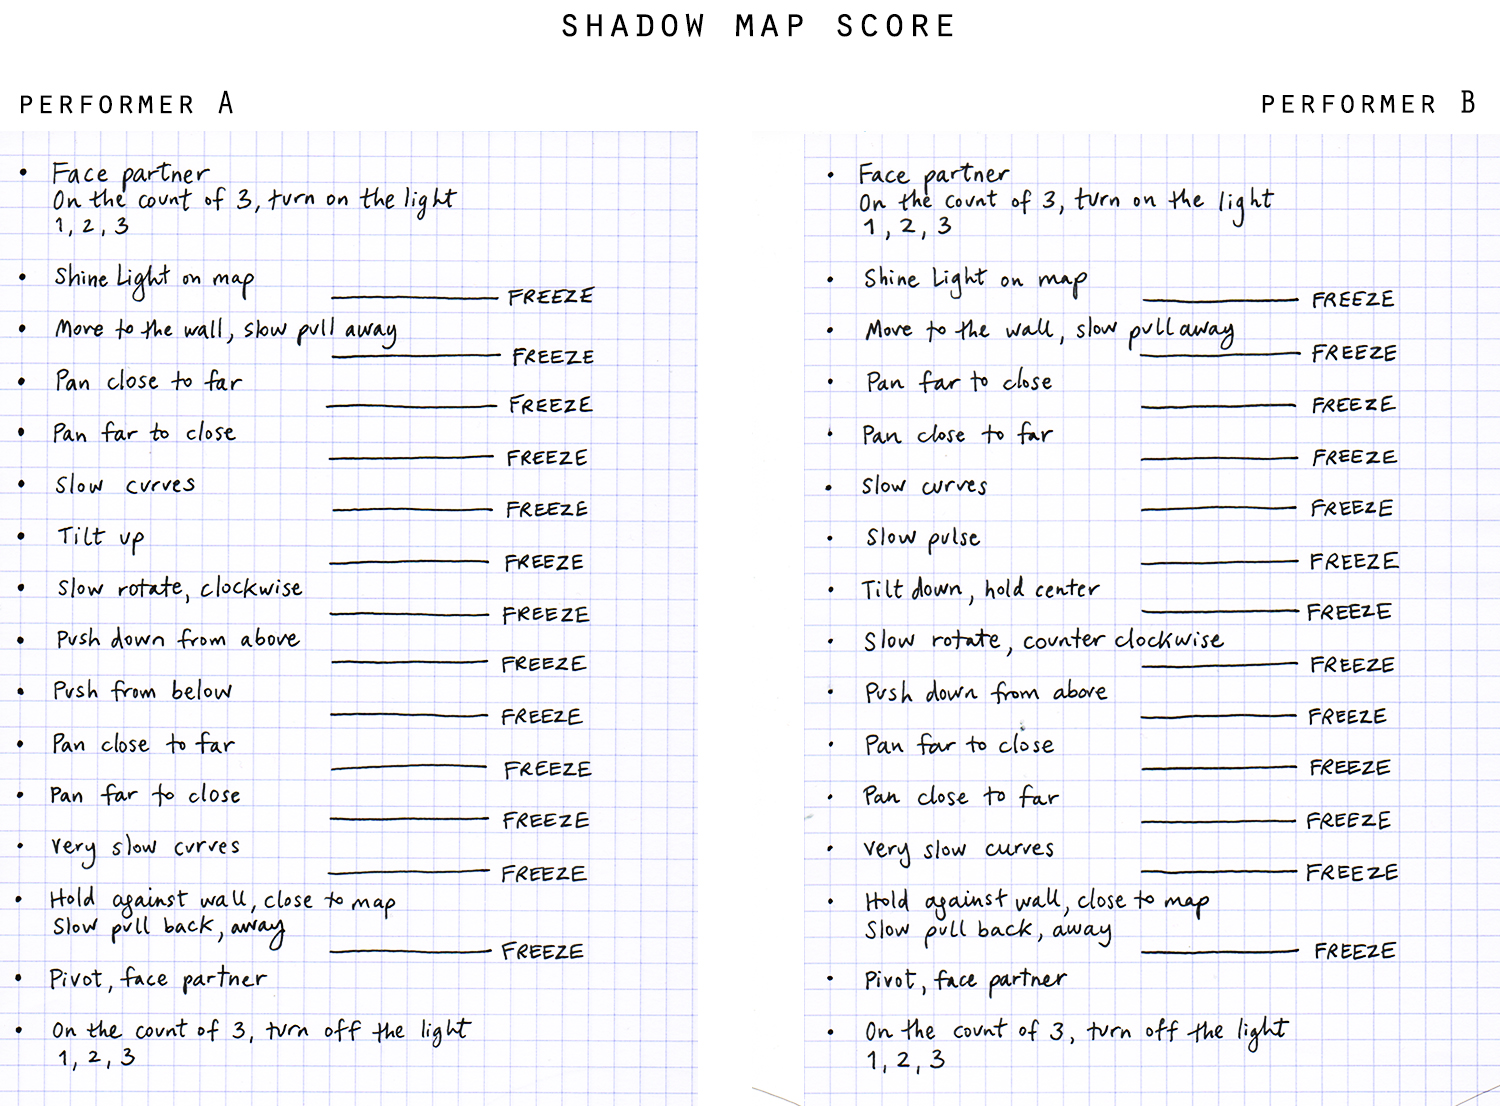 SHADOW MAP SCORE
PERFORMER A
• Face partner
On the count of 3, turn on the light
1, 2, 3
• Shine Light on map
FREEZE
• Move to the wall, slow pull away
FREEZE
• Pan close to far
FREEZE
• Pan far to close
FREEZE
• Slow curves
FREEZE
• Tilt up
FREEZE
• Slow rotate, clockwise
FREEZE
• Push down from above
FREEZE
• Push from below
FREEZE
• Pan close to far
FREEZE
• Pan far to close
FREEZE
• Very slow curves
FREEZE
• Hold against wall, close to map
Slow pull back, away
FREEZE
• Pivot, face partner
• On the count of 3, turn off the light
1, 2, 3
PERFORMER B
• Face partner
On the count of 3, turn on the light
1, 2, 3
• Shine Light on map
FREEZE
• Move to the wall, slow pull away
FREEZE
• Pan far to close
FREEZE
• Pan close to far
FREEZE
• Slow curves
FREEZE
• Slow pulse
FREEZE
• Tilt down, hold center
FREEZE
• Slow rotate, counter clockwise
FREEZE
• Push down from above
FREEZE
• Pan far to close
FREEZE
• Pan close to far
FREEZE
• Very slow curves
FREEZE
• Hold against wall, close to map
Slow pull back, away
FREEZE
• Pivot, face partner
• On the count of 3, turn off the light
1, 2, 3